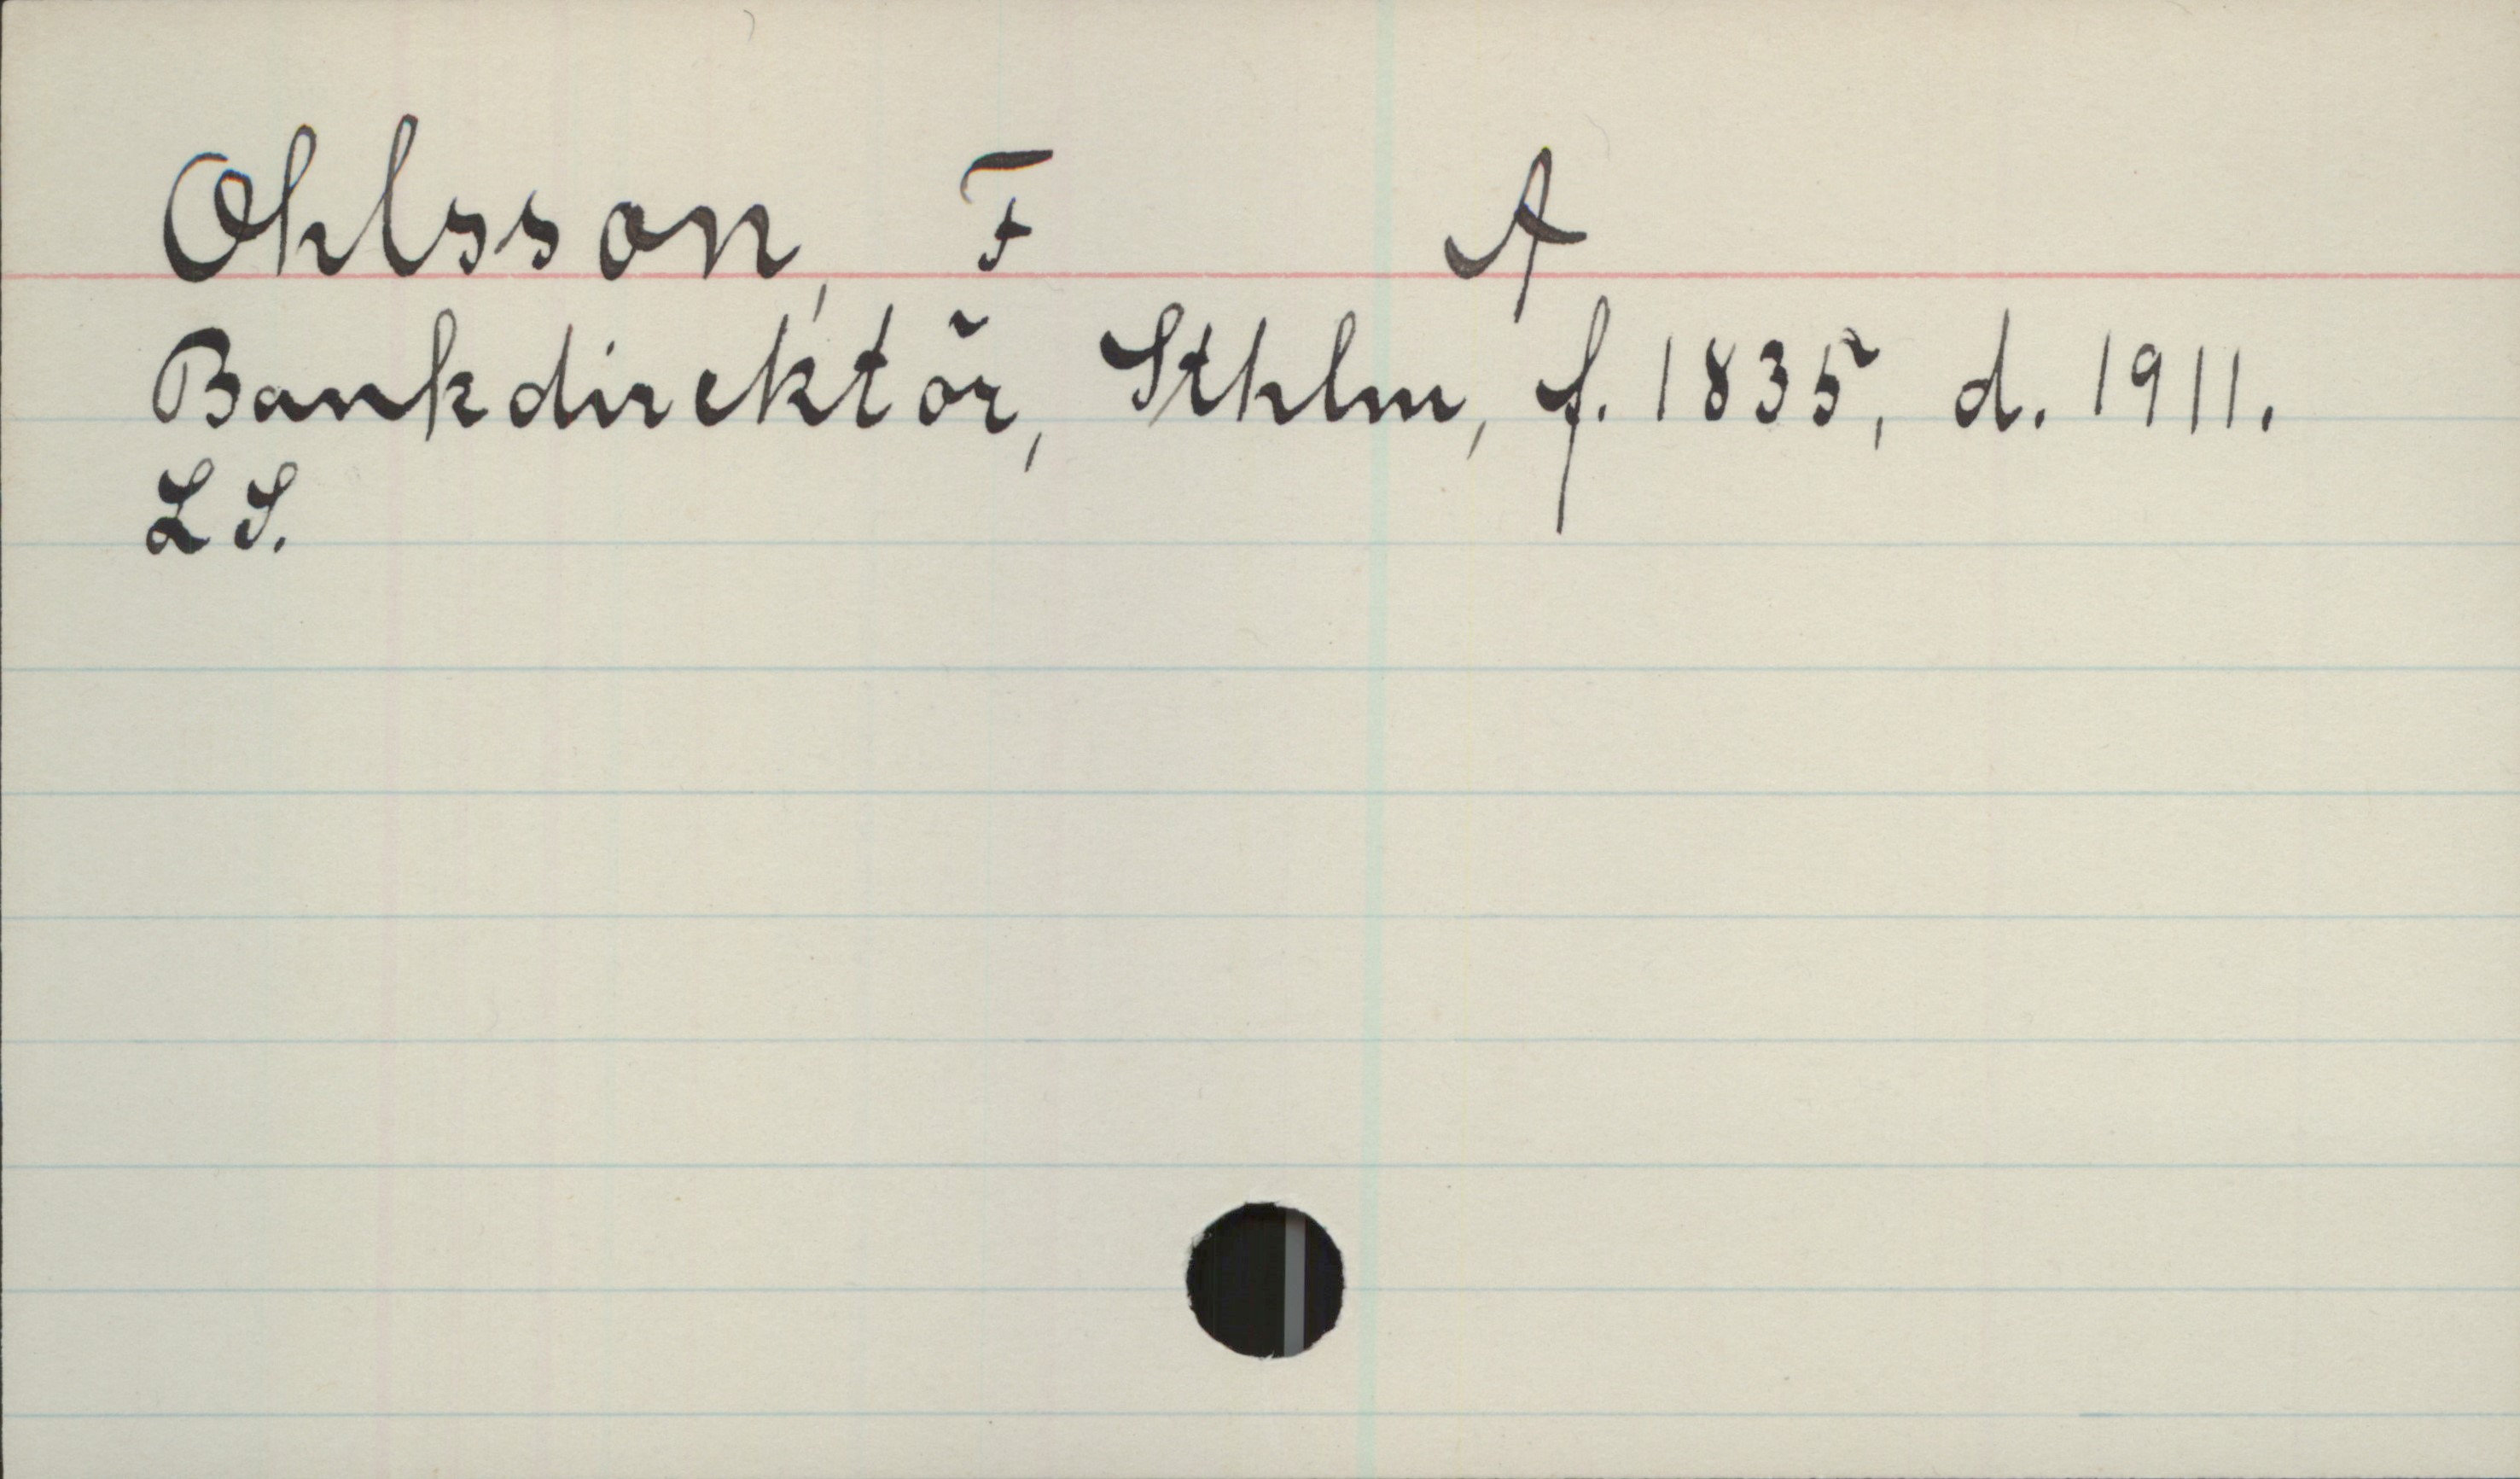 Ohlsson, F A
Bankdirektör, Sthlm, f. 1835, d. 1911.
L S.